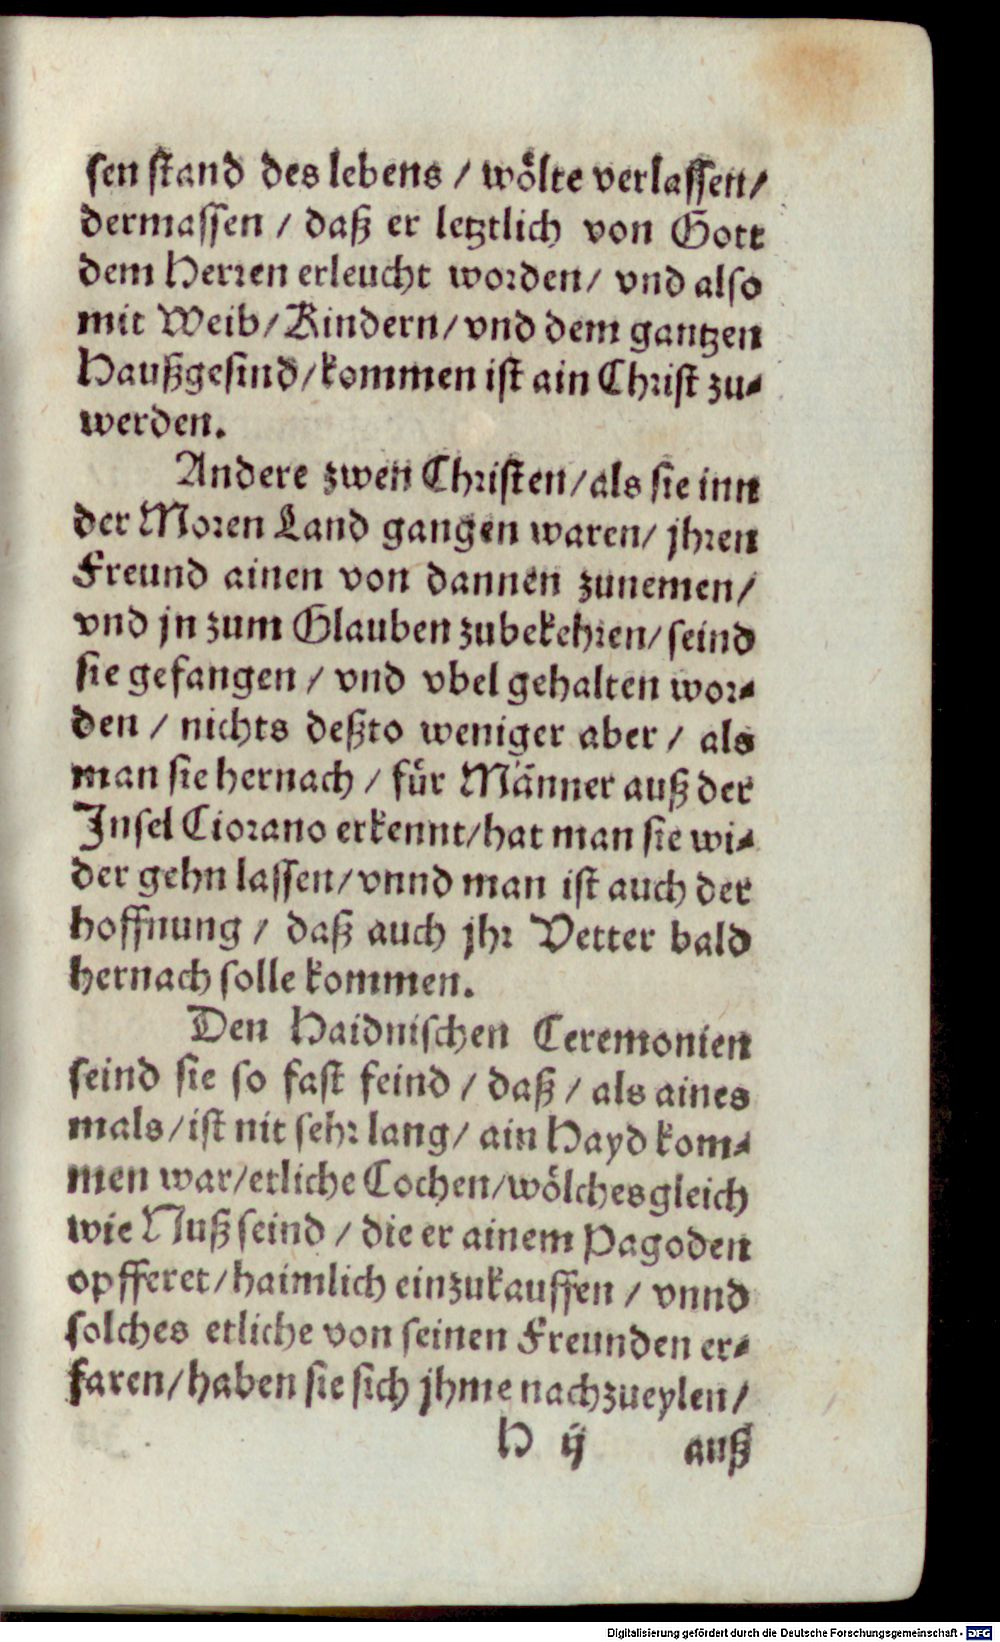 sen stand des lebens / wölte verlassen/
dermassen / daß er letztlich von Gott
dem Herren erleucht worden/ vnd also
mit Weib/ Kindern/ vnd dem gantzen
Haußgesind/ kommen ist ain Christ zu⸗
werden.
Andere zwen Christen/ als sie inn
der Moren Land gangen waren/ jhren
Freund ainen von dannen zunemen/
vnd jn zum Glauben zubekehren/ seind
sie gefangen / vnd vbel gehalten wor⸗
den / nichts deßto weniger aber / als
man sie hernach / für Männer auß der
Insel Ciorano erkennt/ hat man sie wi⸗
der gehn lassen/ vnnd man ist auch der
hoffnung / daß auch jhr Vetter bald
hernach solle kommen.
Den Haidnischen Ceremonien
seind sie so fast feind / daß / als aines
mals/ ist nit sehr lang/ ain Hayd kom⸗
men war/ etliche Cochen/ wölches gleich
wie Nuß seind / die er ainem Pagoden
opfferet/ haimlich einzukauffen / vnnd
solches etliche von seinen Freunden er⸗
faren/ haben sie sich jhme nachzueylen/
H ij auß
Digitalisierung gefördert durch die Deutsche Forschungsgemeinschaft - DFG